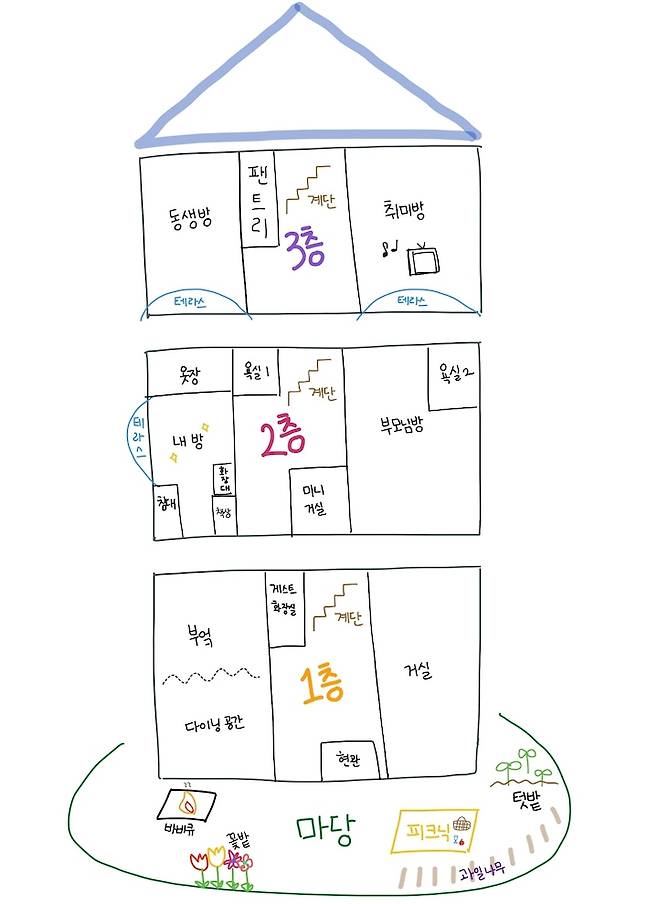 동생방
팬
트
리
계단
3층
취미방
테라스
테라스
옷장
욕실1
계단
욕실2
테
라
스
내 방
2층
부모님방
화
장
대
침대
책상
미니
거실
게스트
화장실
계단
부엌
1층
거실
다이닝 공간
현관
바비큐
꽃밭
마당
피크닉
텃밭
과일나무